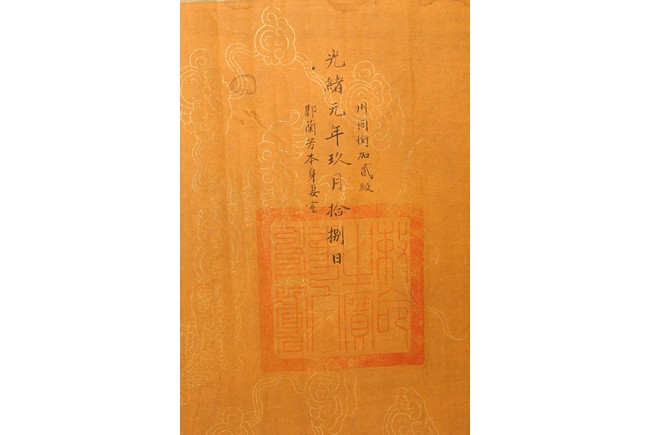 州同銜加貳級
光緒元年玖月拾捌日
郭蘭芳本身妻室
敕命
之寶